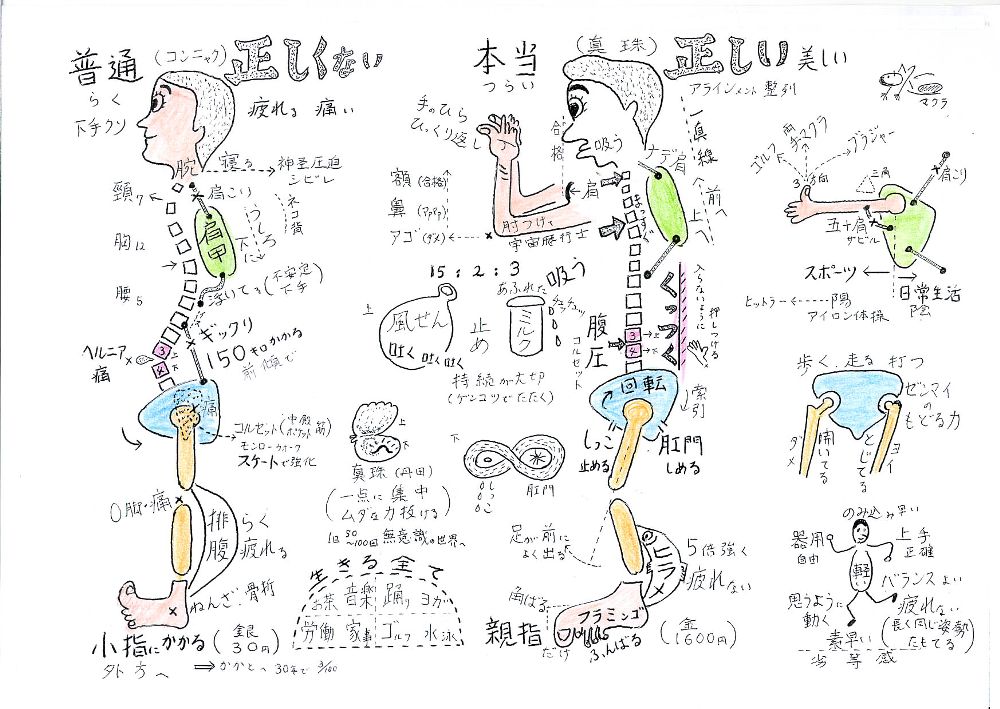 普通 (コンニャク) 正しくない
らく
下手クソ
疲れる 痛い
腕 寝る→神圣圧迫
シビレ
頸7
肩こり
ネコ背
うしろ
下に
肩甲
胸12
腰5
浮いてる (不安定 下手)
ギックリ
150キロかかる
前傾で
ヘルニア
痛
上
3
4
下
痛
コルセット(中殿 ポケット筋)
モンローウォーク
スケートで強化
O脚・痛
排腹
らく
疲れる
ねんざ・骨折
小指にかかる (銀 30円)
外方へ ⇒かかとへ
本当 (真珠) 正しい 美しい
つらい
アラインメント 整列
マクラ
手のひら
ひっくり返し
合格
吸う
ナデ肩
一直線
前へ
上へ
肩
額(合格)
鼻(アァァ)
アゴ(ダメ)
肘つけて
宇宙飛行士
まっすぐ
15:2:3
上
風せん
吐く 吐く 吐く
止め
あふれた 吸う
チュチュッ
ミルク
持続が大切
(ゲンコツでたたく)
腹圧
コルセット
3 上
4 下
くっつく
入らないように
押しつける
索引
回転
しっこ
止める
肛門
しめる
上
下
真珠(丹田)
(一点に集中
ムダな力抜ける)
1日50〜100回 無意識の世界へ
下
しっこ
肛門
生きる全て
お茶 音楽 踊り ヨガ
労働 家事 ゴルフ 水泳
足が前に
よく出る
ヒラメ
5倍強く
疲れない
角ばる
フラミンゴ
親指だけ ふんばる (金 1600円)
ゴルフ
手マクラ
ブラジャー
3方向
三角
肩こり
五十肩
サビル
スポーツ
日常生活
ヒットラー←陽
陰
アイロン体操
歩く 走る 打つ
ゼンマイ
の
もどる力
ダメ
開いてる
とじてる
ヨイ
のみ込み早い
器用
自由
上手
正確
軽い
バランスよい
思うように
動く
疲れない
(長く同じ姿勢 たもてる)
素早い
劣等感